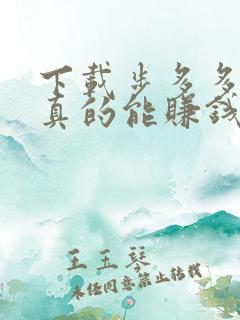 下载步多多
真的能赚钱
王玉琴
未经同意禁止转载